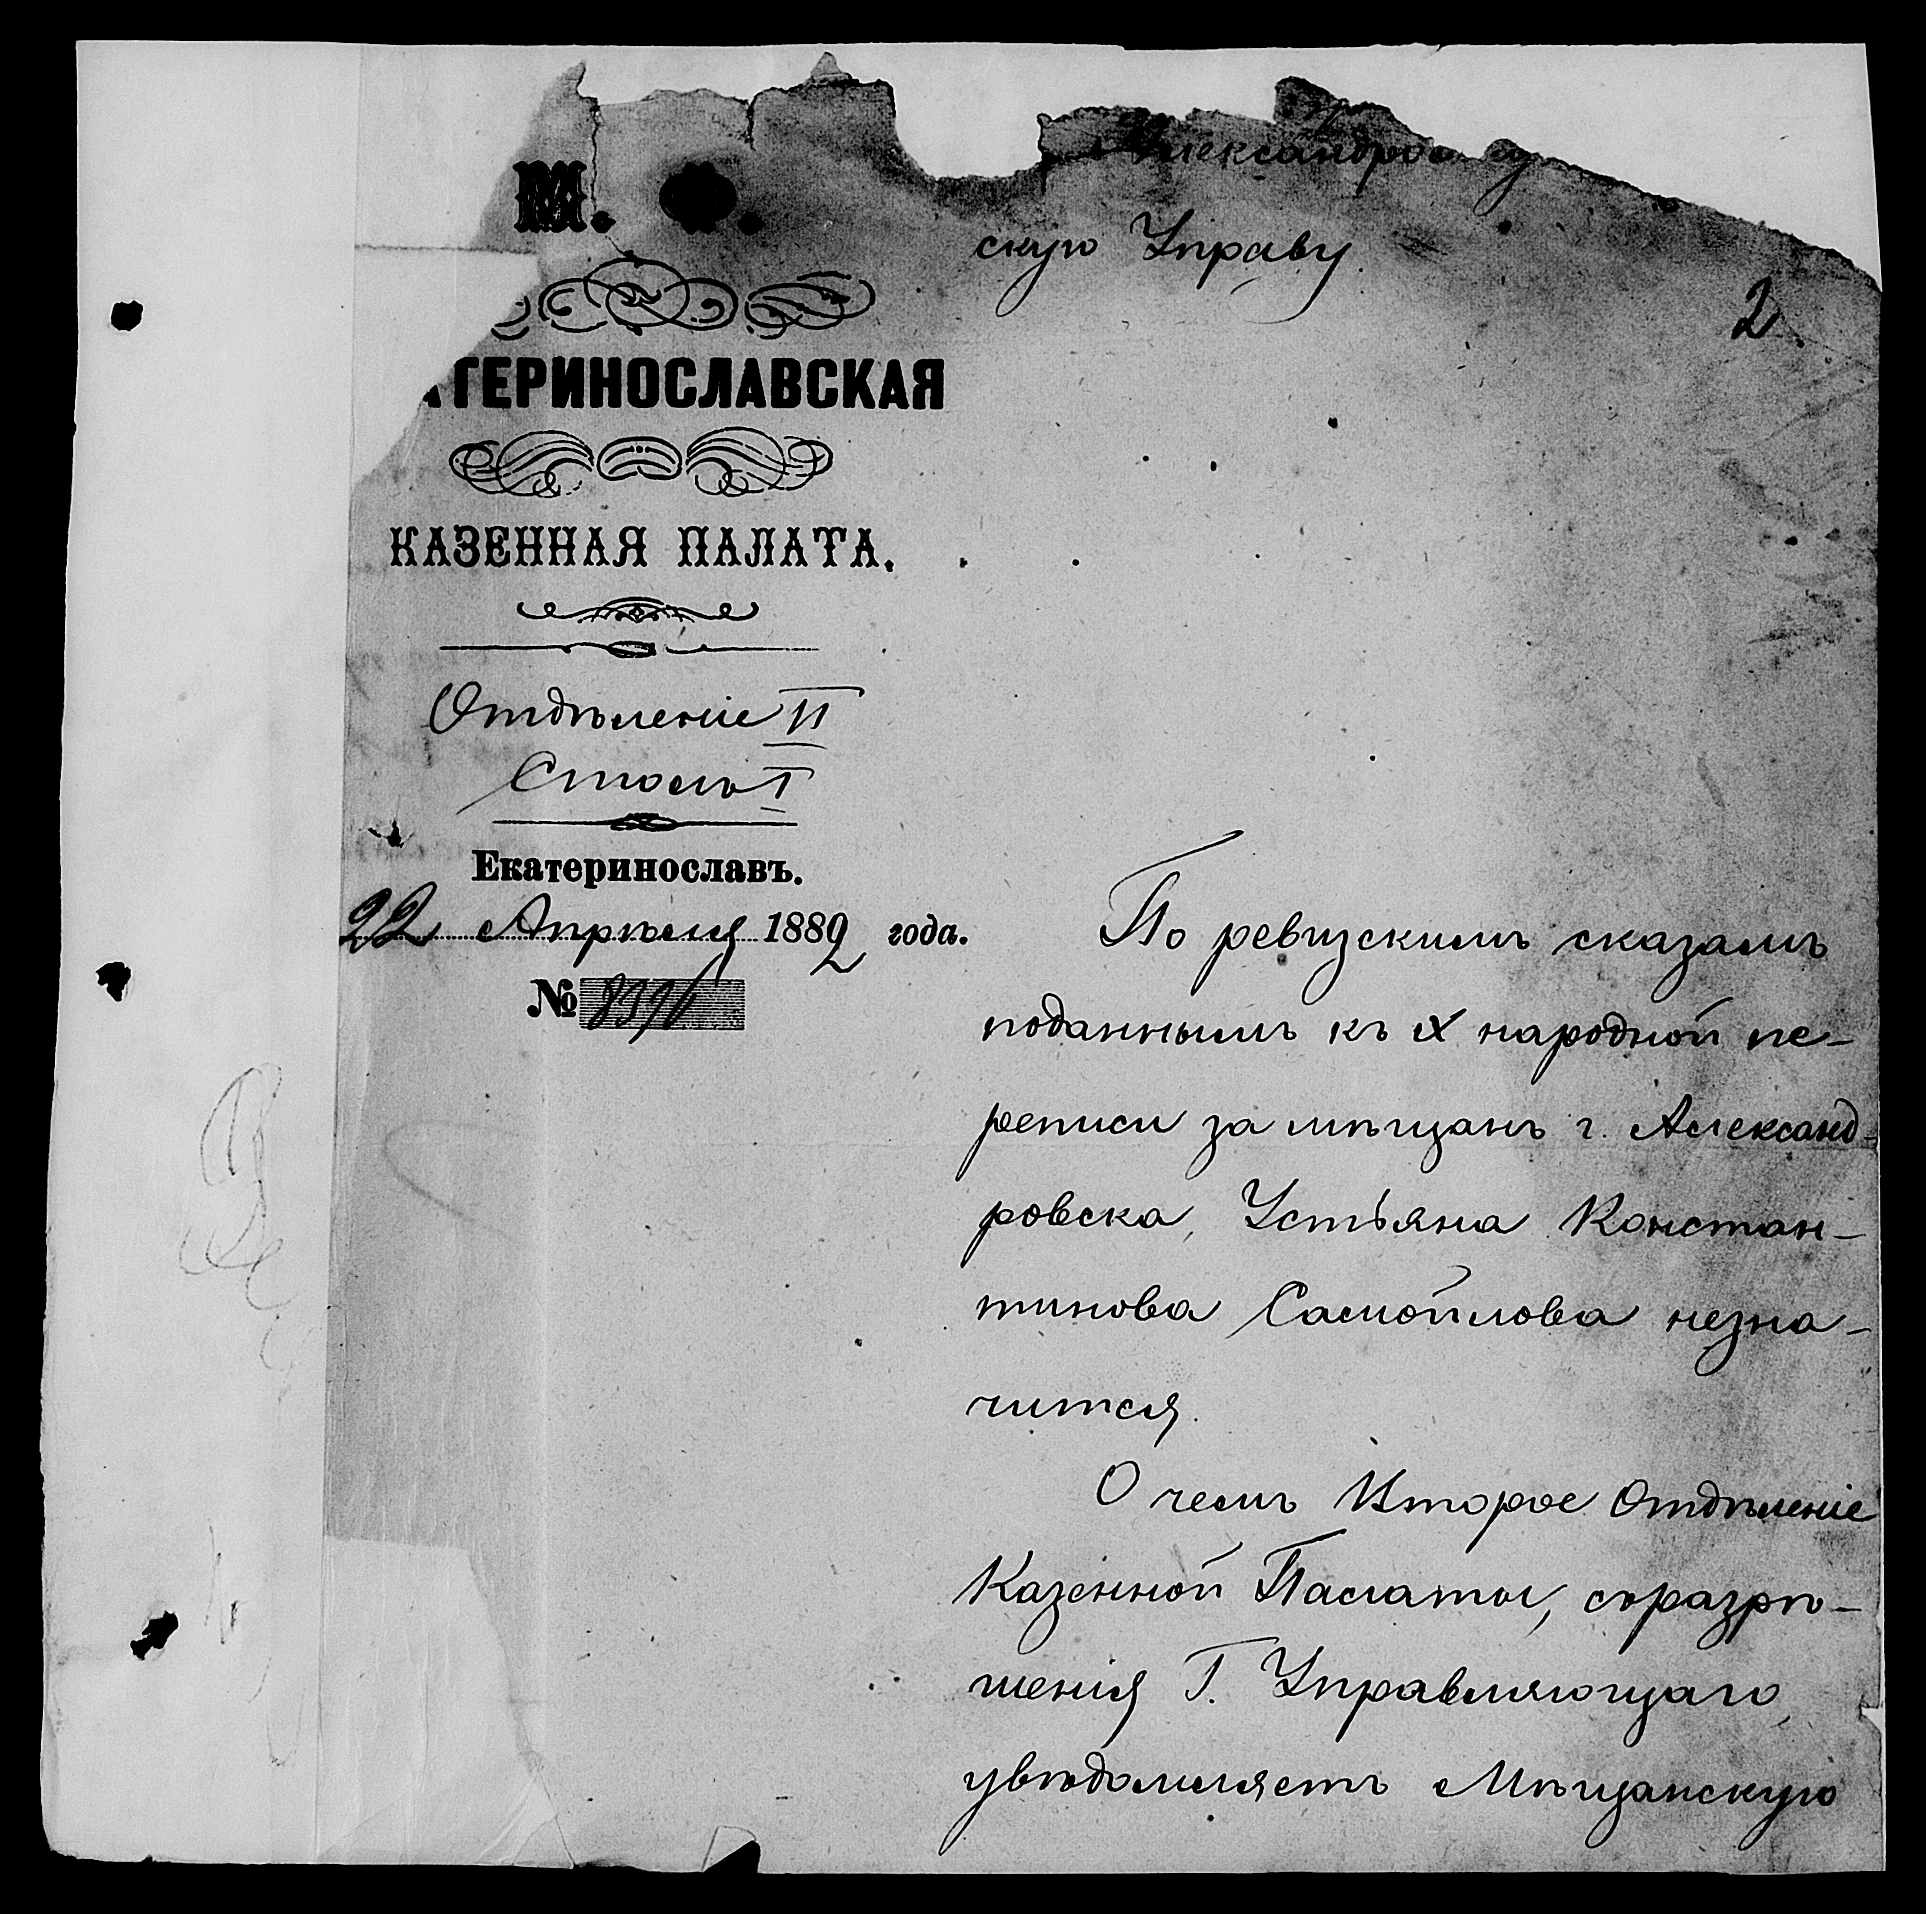 М. Ф.
АТЕРИНОСЛАВСКАЯ
КАЗЕННАЯ ПАЛАТА.
Отдѣленіе II
Столъ I
Екатеринославъ.
22 Апрѣля 1882 года.
№ 8396
Александров
скую Управу.
2
По ревизскимъ сказамъ
поданнымъ къ X народной пе-
реписи за мѣщанъ г. Александ-
ровска, Устьяна Констан-
тинова Самойлова незна-
чится.
О чемъ Второе Отдѣленіе
Казенной Палаты, съразрѣ-
шенія Г. Управляющаго,
увѣдомляетъ Мѣщанскую